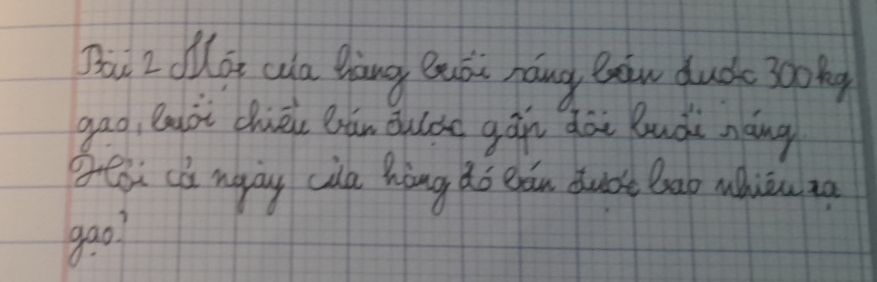 Bài 2 Một cửa hàng buổi sáng bán được 300kg
gạo, buổi chiều bán được gấp đôi buổi sáng
Hỏi cả ngày cửa hàng đó bán được bao nhiêu
gạo?